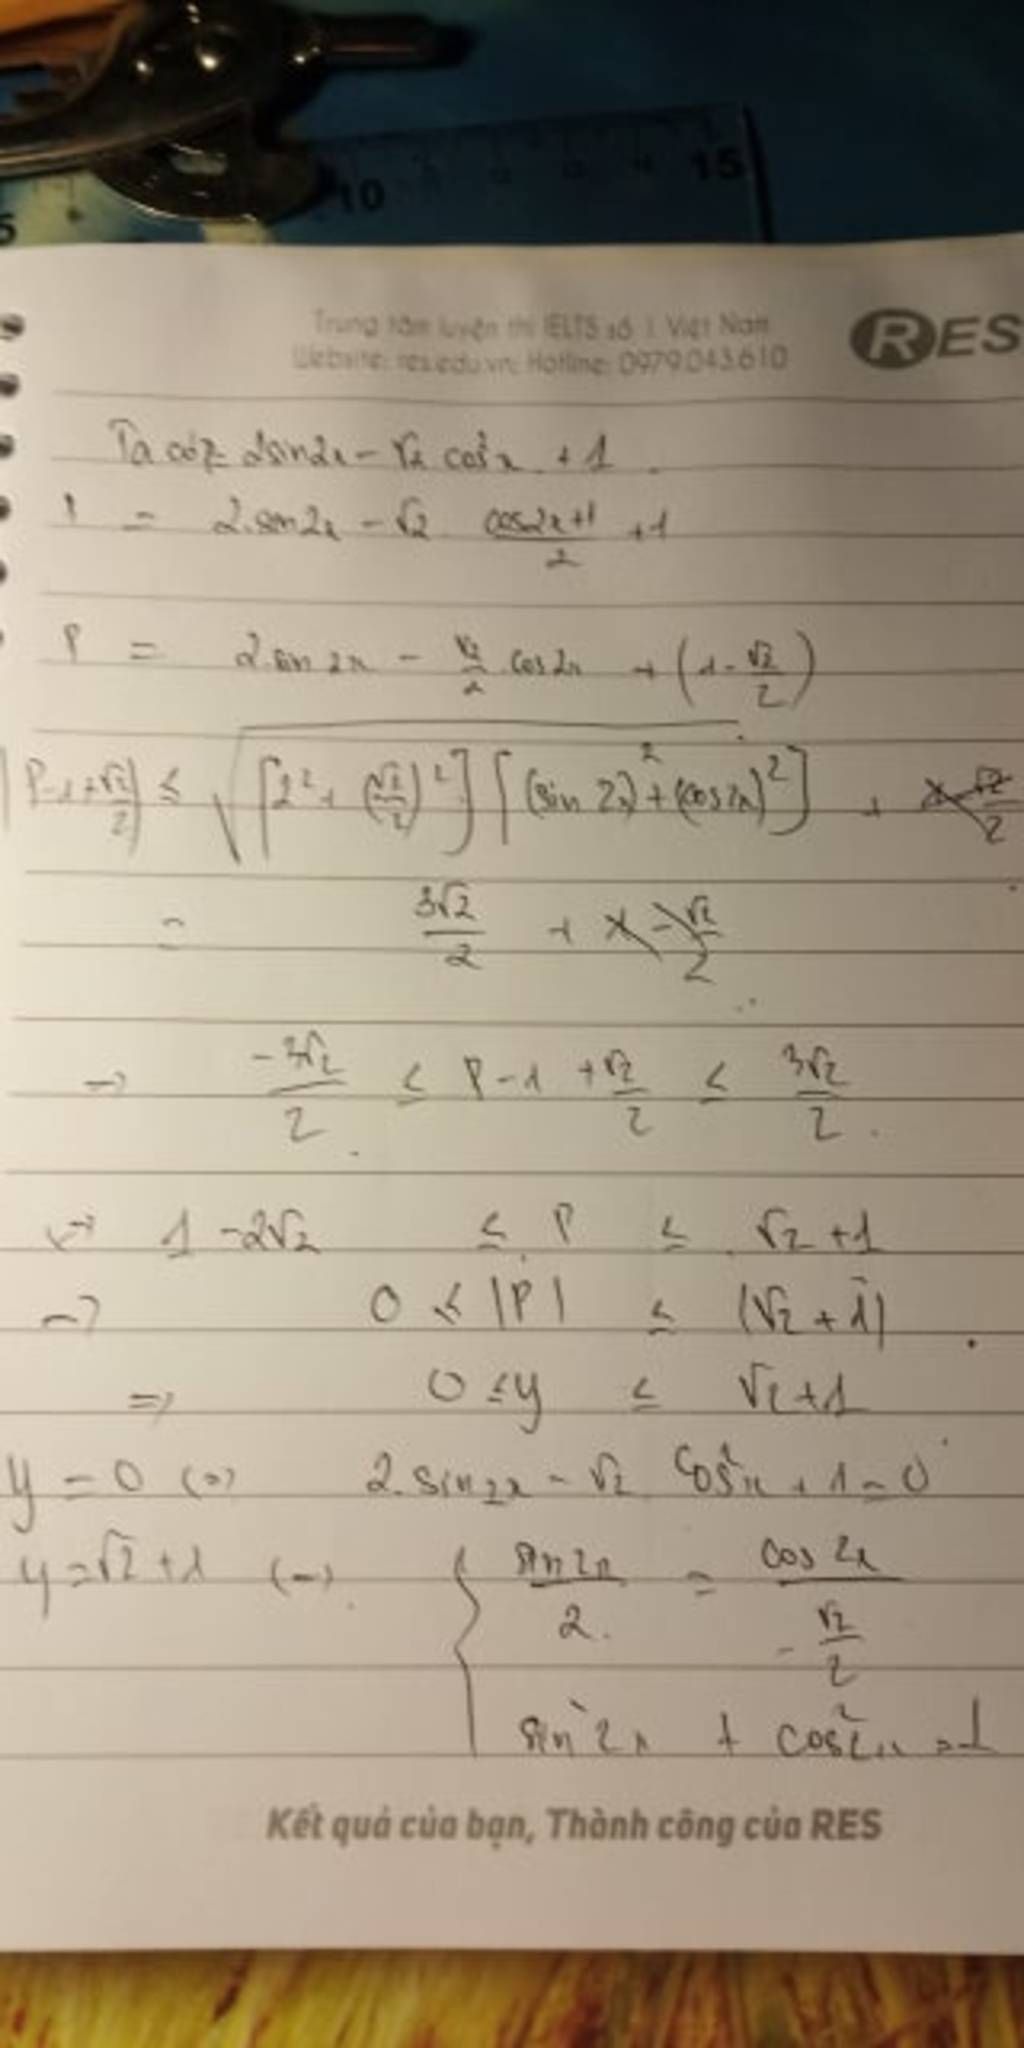 10 15
5
Trung tâm luyện thi IELTS số 1 Việt Nam
RES
Website: res.edu.vn; Hotline: 0979.043.610
Ta có P = 2sin2x - √2 cos²x + 1
P = 2.sin2x - √2 (cos2x+1)/2 + 1
P = 2.sin2x - √2/2 .cos2x + (1 - √2/2)
|P - 1 + √2/2| ≤ √([2² + (√2/2)²][(sin 2x)² + (cos2x)²]) +
= 3√2/2 +
→ -3√2/2 ≤ P - 1 + √2/2 ≤ 3√2/2.
↔ 1 - 2√2 ≤ P ≤ √2 + 1
→ 0 ≤ |P| ≤ |√2 + 1|
⇒ 0 ≤ y ≤ √2 + 1
y = 0 ⇔ 2.sin2x - √2 cos²x + 1 = 0
y = √2 + 1 ⇔ { sin2x/2 = cos2x/(-√2/2)
sin²2x + cos²2x = 1
Kết quả của bạn, Thành công của RES